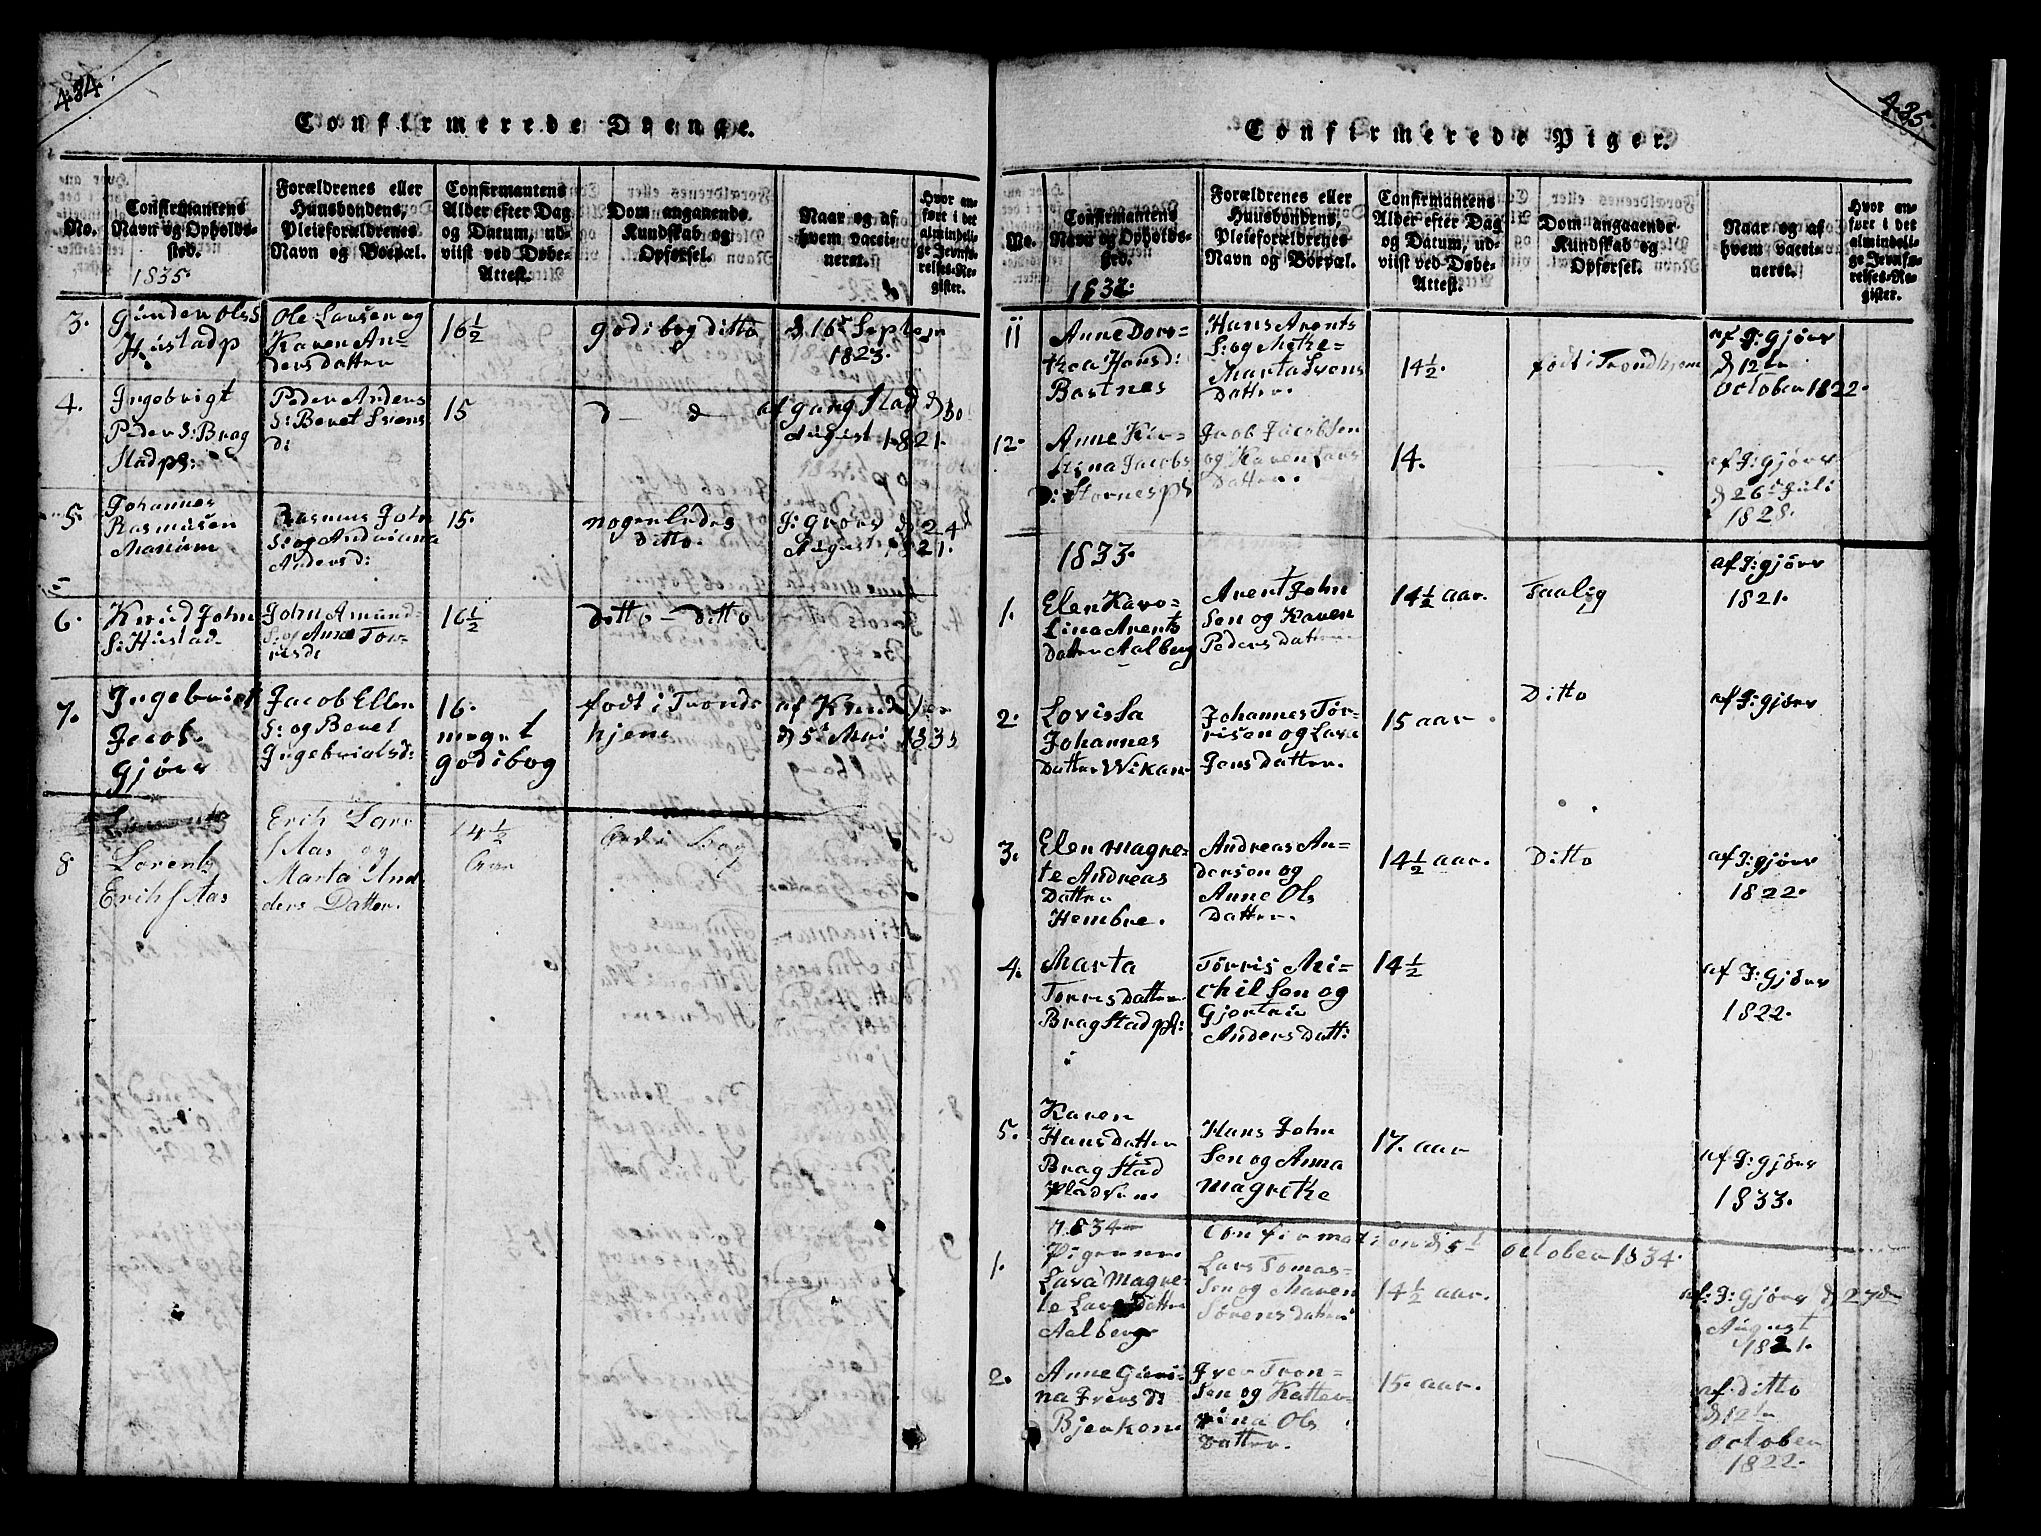 434
Confirmerede Drenge.
No.
Confirmantens
Navn og Opholds-
sted.
1835.
Forældrenes eller
Huusbondens,
Pleieforældrenes
Navn og Boepæl.
Confirmantens
Alder efter Dag
og Datum, ud-
viist ved Døbe-
Attest.
Dom angaaende
Kundskab og
Opførsel.
Naar og af
hvem vacci-
neret.
Hvor an-
ført i det
almindeli-
ge Jevnfø-
relses-Re-
gister.
3.
Gunder Ols S
Hustadp
Ole Larsen og
Karen An-
dersdatter
16½
godi bog ditto
d 16de Septem
1823.
4.
Ingebrigt
Peder S: Brag
stadpl:
Peder Anders
S: Beret
15
d — d
af gangstad d 30
August 1821.
5.
Johannes
Rasmusen
Rasmus John
S: og Andriana
Andersd:
15.
nogenledes
ditto.
d 24
August 1821.
6.
Knud John
S: Hustad
John Amund
S: og Anne Tor-
risd:
16½
ditto — ditto
7.
Ingebrigt
Jacob.
Gjørv
Jacob Ellen
S: og Beret
Ingebrigtsd:
16.
meget
godibog
født i Trond
hjem
af Knud
d 5te Mai 1835
8
Lorents
Erichs Aas
Erich Lars
s Aas og
Marta And
ders Datter.
14½
Aar
435
Confirmerede Piger.
No.
Confirmantens
Navn og Opholds-
sted.
1832.
Forældrenes eller
Huusbondens,
Pleieforældrenes
Navn og Borpæl.
Confirmantens
Alder efter Dag
og Datum, ud-
viist ved Døbe-
Attest.
Dom angaaende
Kundskab og
Opførsel.
Naar og af
hvem vacci-
neret.
Hvor an-
ført i det
almindeli-
ge Jevnfø-
relses-Re-
gister.
11
Anne Doro-
thea Hansd:
Bartnes
Hans Arents
S: og Mette-
Marta Svens
Datter.
14½.
født i Trondhjem
af J: Gjørv
d 12te
October 1822.
12.
Anne Kir-
stina Jacobs
D: Stornes pl
Jacob Jacobsen
og Karen Lars
Datter.
14.
af J: Gjørv
d 26de Juli
1828.
1833.
1.
Elen Karo-
Lina Arents
Datter Aalberg
Arent John
Sen og Karen
Peders datter
14½ aar.
Taalig
af J: gjørv
1821.
2.
Lovissa
Johannes
Datter Wikan
Johannes Tør-
risen og Lava
Jens datter.
15 aar.
Ditto
af J: gjørv
3.
Elen Magre-
te Andreas
Datter
Hembre.
Andreas An-
dersen og
Anne Ols
Datter.
14½ aar.
Ditto
af J: gjørv
1822.
4.
Marta
Torrisdatter
Bragstad pl:
Tørris Mi-
chil Sen og
Gjertrie
Anders Datt:
14½
af J: Gjørv
1822.
5.
Karen
Hansdatter
Bragstad
Pladsen
Hans John
Sen og Anna
Magrethe
17. aar
af J: gjørv
1833.
1834
Pigerne
Confirmation d 5te October 1834.
1.
Lava Magre-
te Lars Datter
Aalberg
Lars Tomas-
Sen og Maren
Sørens datter
14½ aar.
af: J: Gjørv d 27de
August
1821.
2.
Anne Guri-
na Ivers d:
Bjerkem
Iver Tron-
Sen og Kater-
rina Ols
Datter.
15. aar.
af ditto
d 12te
October
1822.